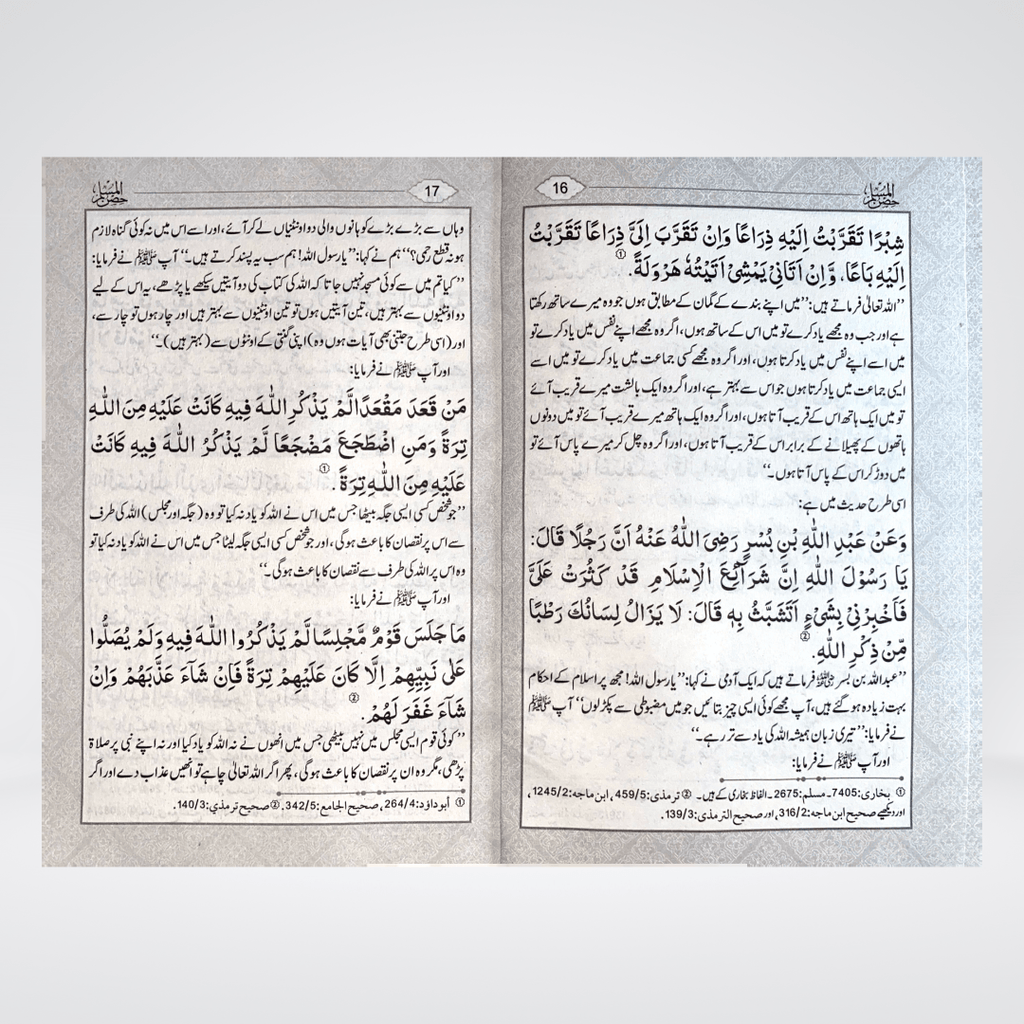 حصن المسلم
16
شِبْرًا تَقَرَّبْتُ اِلَيْهِ ذِرَاعًا وَاِنْ تَقَرَّبَ اِلَيَّ ذِرَاعًا تَقَرَّبْتُ
اِلَيْهِ بَاعًا، وَّاِنْ اَتَانِيْ يَمْشِيْ اَتَيْتُهٗ هَرْوَلَةً. ①
’’اللہ تعالیٰ فرماتے ہیں: ’’میں اپنے بندے کے گمان کے مطابق ہوں جو وہ میرے ساتھ رکھتا
ہے اور جب وہ مجھے یاد کرے تو میں اس کے ساتھ ہوں، اگر وہ مجھے اپنے نفس میں یاد کرے تو
میں اسے اپنے نفس میں یاد کرتا ہوں، اور اگر وہ مجھے کسی جماعت میں یاد کرے تو میں اسے
ایسی جماعت میں یاد کرتا ہوں جو اس سے بہتر ہے، اور اگر وہ ایک بالشت میرے قریب آئے
تو میں ایک ہاتھ اس کے قریب آتا ہوں، اور اگر وہ ایک ہاتھ میرے قریب آئے تو میں دونوں
ہاتھوں کے پھیلانے کے برابر اس کے قریب آتا ہوں، اور اگر وہ چل کر میرے پاس آئے تو
میں دوڑ کر اس کے پاس آتا ہوں۔‘‘
اسی طرح حدیث میں ہے:
وَعَنْ عَبْدِ اللّٰهِ بْنِ بُسْرٍ رَضِيَ اللّٰهُ عَنْهُ اَنَّ رَجُلًا قَالَ:
يَا رَسُوْلَ اللّٰهِ اِنَّ شَرَآئِعَ الْاِسْلَامِ قَدْ كَثُرَتْ عَلَيَّ
فَاَخْبِرْنِيْ بِشَيْءٍ اَتَشَبَّثُ بِهٖ قَالَ: لَا يَزَالُ لِسَانُكَ رَطْبًا
مِّنْ ذِكْرِ اللّٰهِ. ②
’’عبداللہ بن بسر رضی اللہ عنہ فرماتے ہیں کہ ایک آدمی نے کہا: ’’یا رسول اللہ! مجھ پر اسلام کے احکام
بہت زیادہ ہو گئے ہیں، آپ مجھے کوئی ایسی چیز بتائیں جو میں مضبوطی سے پکڑ لوں‘‘ آپ ﷺ
نے فرمایا: ’’تیری زبان ہمیشہ اللہ کی یاد سے تر رہے۔‘‘
اور آپ ﷺ نے فرمایا:
① بخاری: 7405۔ مسلم: 2675۔ الفاظ بخاری کے ہیں۔ ② ترمذی: 459/5، ابن ماجہ: 1245/2،
اور دیکھیے صحیح ابن ماجہ: 316/2، اور صحیح الترمذی: 139/3.
17
حصن المسلم
وہاں سے بڑے بڑے کوہانوں والی دو اونٹنیاں لے کر آئے، اور اسے اس میں نہ کوئی گناہ لازم
ہو نہ قطع رحمی؟‘‘ ہم نے کہا: ’’یا رسول اللہ! ہم سب یہ پسند کرتے ہیں۔‘‘ آپ ﷺ نے فرمایا:
’’کیا تم میں سے کوئی مسجد نہیں جاتا کہ اللہ کی کتاب کی دو آیتیں سیکھے یا پڑھے، یہ اس کے لیے
دو اونٹنیوں سے بہتر ہیں، تین آیتیں ہوں تو تین اونٹنیوں سے بہتر ہیں اور چار ہوں تو چار سے،
اور (اسی طرح جتنی بھی آیات ہوں وہ) اپنی گنتی کے اونٹوں سے (بہتر ہیں)۔‘‘
اور آپ ﷺ نے فرمایا:
مَنْ قَعَدَ مَقْعَدًا لَّمْ يَذْكُرِ اللّٰهَ فِيهِ كَانَتْ عَلَيْهِ مِنَ اللّٰهِ
تِرَةً وَمَنِ اضْطَجَعَ مَضْجَعًا لَّمْ يَذْكُرُ اللّٰهَ فِيهِ كَانَتْ
عَلَيْهِ مِنَ اللّٰهِ تِرَةً. ①
’’جو شخص کسی ایسی جگہ بیٹھا جس میں اس نے اللہ کو یاد نہ کیا تو وہ (جگہ اور مجلس) اللہ کی طرف
سے اس پر نقصان کا باعث ہو گی، اور جو شخص کسی ایسی جگہ لیٹا جس میں اس نے اللہ کو یاد نہ کیا تو
وہ اس پر اللہ کی طرف سے نقصان کا باعث ہو گی۔‘‘
اور آپ ﷺ نے فرمایا:
مَا جَلَسَ قَوْمٌ مَّجْلِسًا لَّمْ يَذْكُرُوا اللّٰهَ فِيهِ وَلَمْ يُصَلُّوا
عَلٰى نَبِيِّهِمْ اِلَّا كَانَ عَلَيْهِمْ تِرَةً فَاِنْ شَآءَ عَذَّبَهُمْ وَاِنْ
شَآءَ غَفَرَ لَهُمْ. ②
’’کوئی قوم ایسی مجلس میں نہیں بیٹھی جس میں انھوں نے نہ اللہ کو یاد کیا اور نہ اپنے نبی پر صلاۃ
پڑھی، مگر وہ ان پر نقصان کا باعث ہو گی، پھر اگر اللہ تعالیٰ چاہے تو انھیں عذاب دے اور اگر
① أبوداؤد: 264/4، صحیح الجامع: 342/5. ② صحیح ترمذي: 140/3.